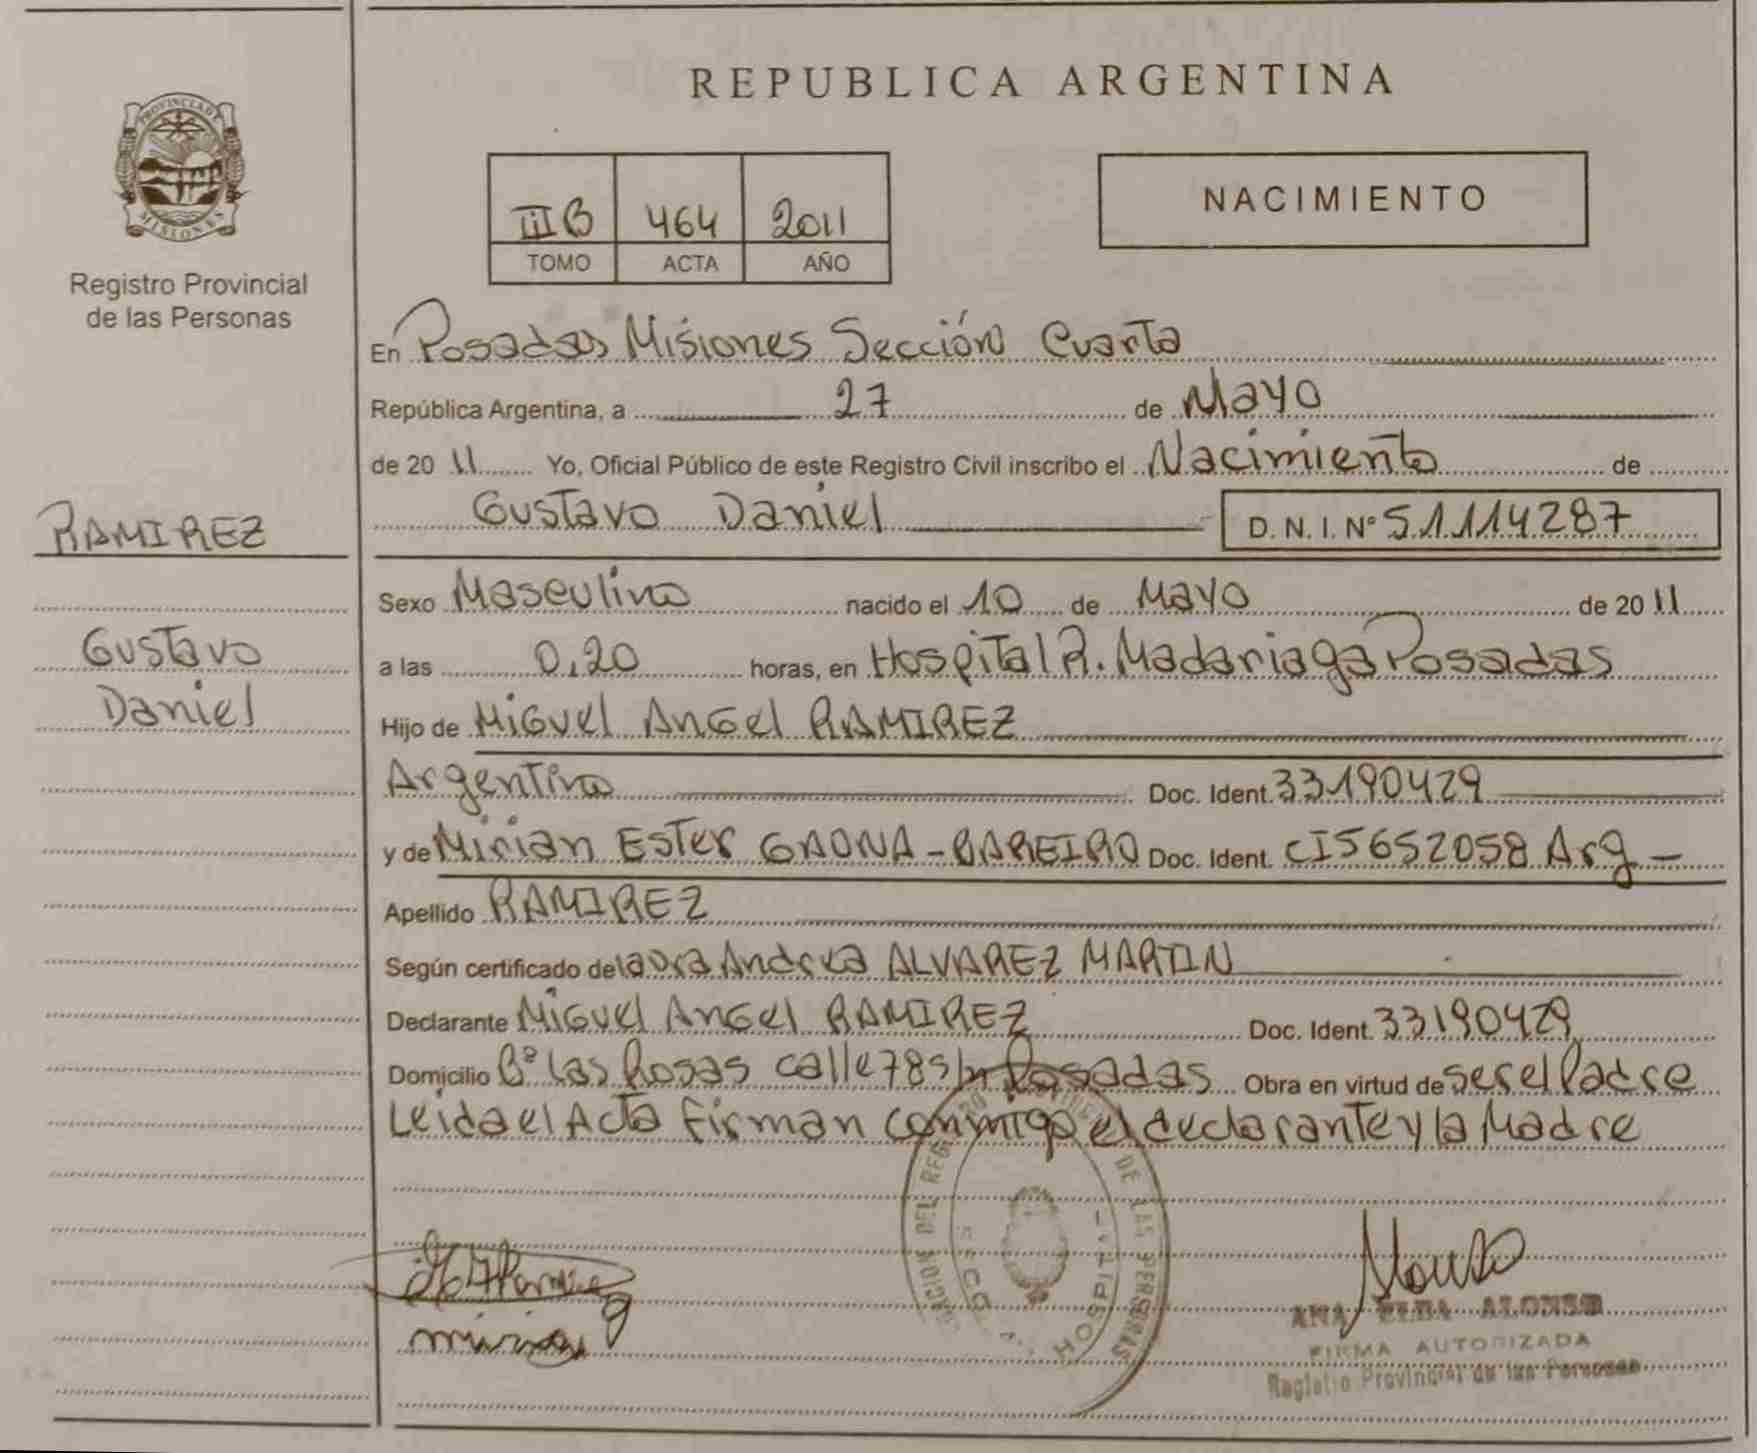 PROVINCIA DE
MISIONES
Registro Provincial
de las Personas
RAMIREZ
Gustavo
Daniel
REPUBLICA ARGENTINA
III B 464 2011
TOMO ACTA AÑO
NACIMIENTO
En Posadas Misiones Sección Cuarta
República Argentina, a 27 de Mayo
de 2011 Yo, Oficial Público de este Registro Civil inscribo el Nacimiento de
Gustavo Daniel D. N. I. Nº 51114287
Sexo Masculino nacido el 10 de Mayo de 2011
a las 0,20 horas, en Hospital R. Madariaga Posadas
Hijo de Miguel Angel RAMIREZ
Argentino Doc. Ident. 33190429
y de Mirian Ester GAONA - BAREIRO Doc. Ident. CI5652058 Arg -
Apellido RAMIREZ
Según certificado de Andrea ALVAREZ MARTIN
Declarante Miguel Angel RAMIREZ Doc. Ident. 33190429
Domicilio Bº Las Rosas calle 78 s/n Posadas Obra en virtud de ser el Padre
Leida el Acta firman conmigo el declarante y la Madre
DE LAS PERSONAS
HOSPITAL
ANA ELBA ALONSO
FIRMA AUTORIZADA
Registro Provincial de las Personas